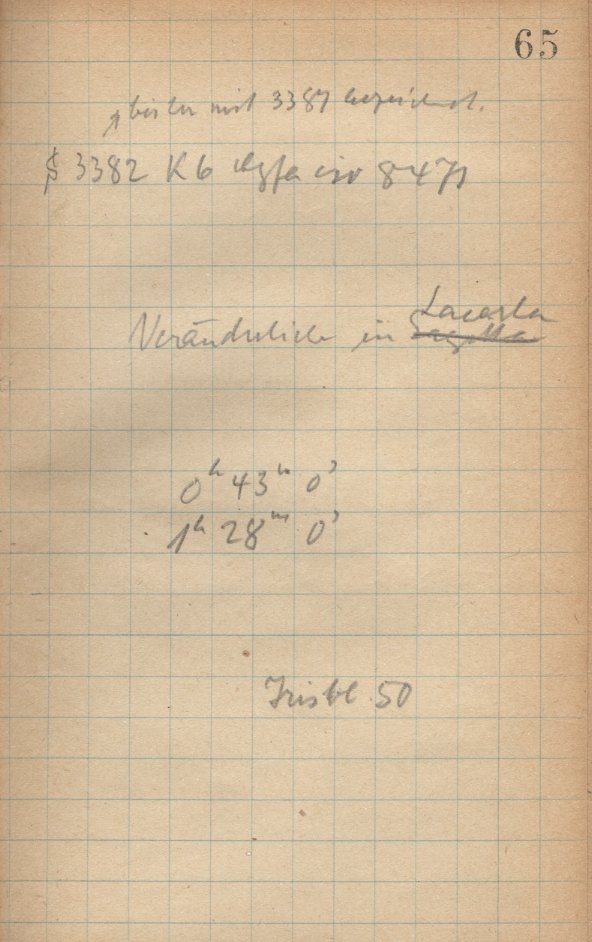 65
bisher mit 3387 bezeichnet.
§ 3382 K6 8471
Veränderliche in Lacerta
0ʰ 43ᵐ 0ˢ
1ʰ 28ᵐ 0ˢ
Irisbl. 50